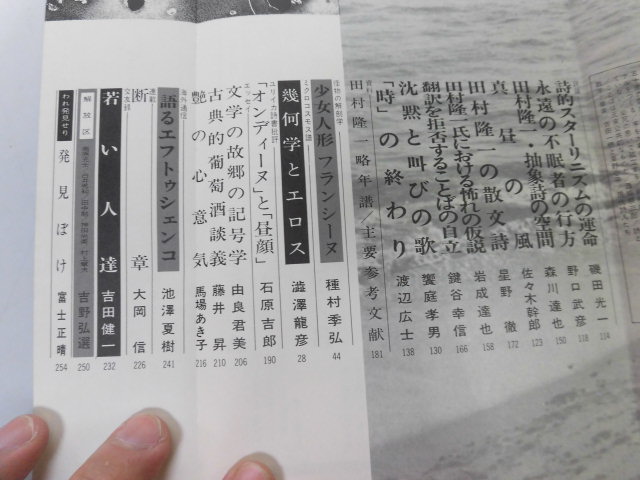 詩的スターリニズムの運命 磯田光一 114
永遠の不眠者の行方 野口武彦 118
田村隆一・抽象詩の空間 森川達也 150
真昼の風 佐々木幹郎 123
田村隆一の散文詩 星野徹 172
田村隆一氏における怖れの仮説 岩成達也 158
翻訳を拒否することばの自立 鍵谷幸信 166
沈黙と叫びの歌 饗庭孝男 130
「時」の終わり 渡辺広士 138
資料
田村隆一略年譜/主要参考文献 181
怪物の解剖学
少女人形フランシーヌ 種村季弘 44
ミクロコスモス譜
幾何学とエロス 澁澤龍彦 28
ユリイカ詩書批評
「オンディーヌ」と「昼顔」 石原吉郎 190
エッセイ
文学の故郷の記号学 由良君美 206
古典的葡萄酒談義 藤井昇 210
艶の心意気 馬場あき子 216
海外通信
語るエフトゥシェンコ 池澤夏樹 241
連載
断章 大岡信 226
交友録
若い人達 吉田健一 232
解放区
吉野弘選 250
われ発見せり
発見ぼけ 富士正晴 254